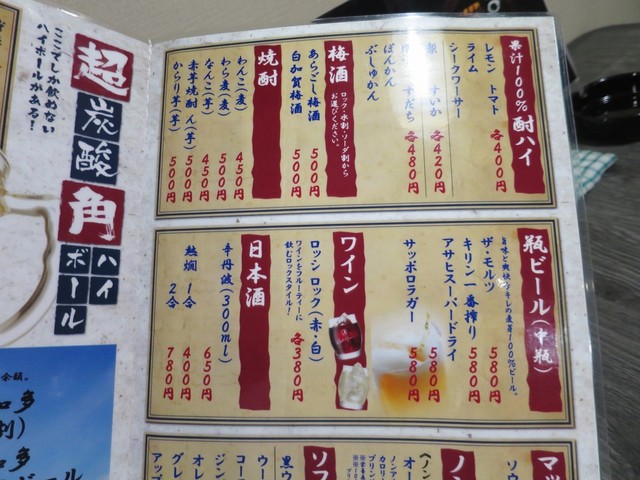 果汁100%酎ハイ
レモン トマト
ライム
シークワーサー
各400円
すいか
各420円
すだち
各480円
ぽんかん
ぶしゅかん
梅酒
ロック・水割・ソーダ割から
お選びください。
あらごし梅酒 500円
白加賀梅酒 500円
焼酎
わんこ(麦) 450円
わら麦(麦) 500円
なんこ(芋) 450円
赤芋焼酎 ん(芋) 500円
からり芋(芋) 500円
瓶ビール(中瓶)
ザ・モルツ 580円
キリン一番搾り 580円
アサヒスーパードライ 580円
サッポロラガー 580円
ワイン
ロッシ ロック(赤・白)
ワインをフルーティーに
飲むロックスタイル!
各380円
日本酒
辛丹波(300ml) 650円
熱燗 1合 400円
2合 780円
マッ
ノン
ソフ
ここでしか飲めない
ハイボールがある!
超
炭酸
角
ハイ
ボール